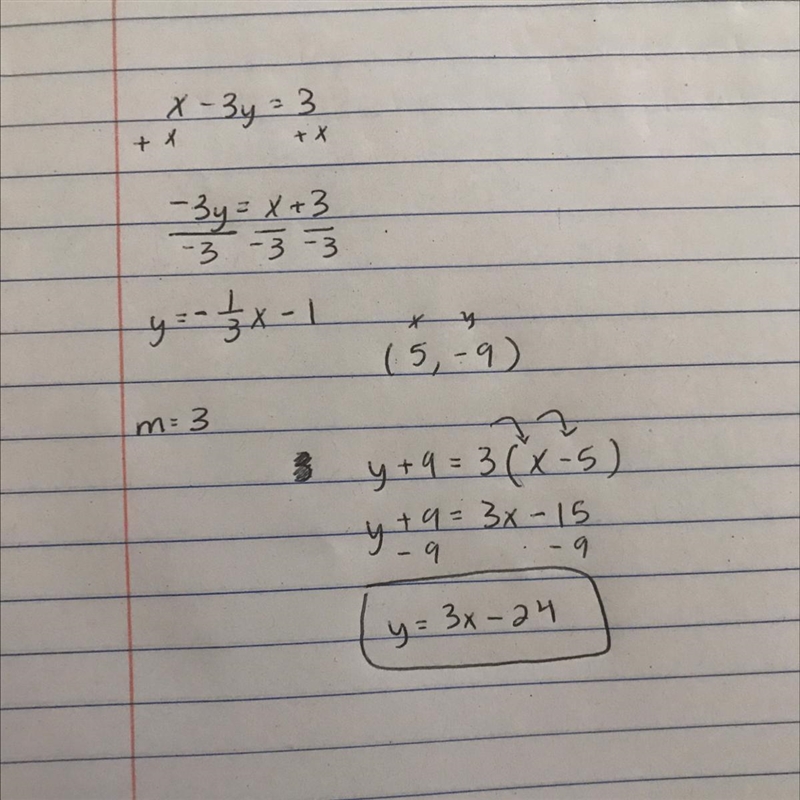 x - 3y = 3
+ x + x
-3y = x + 3
-3 -3 -3
y = - 1/3 x - 1
x y
(5, -9)
m = 3
y + 9 = 3(x - 5)
y + 9 = 3x - 15
- 9 - 9
y = 3x - 24